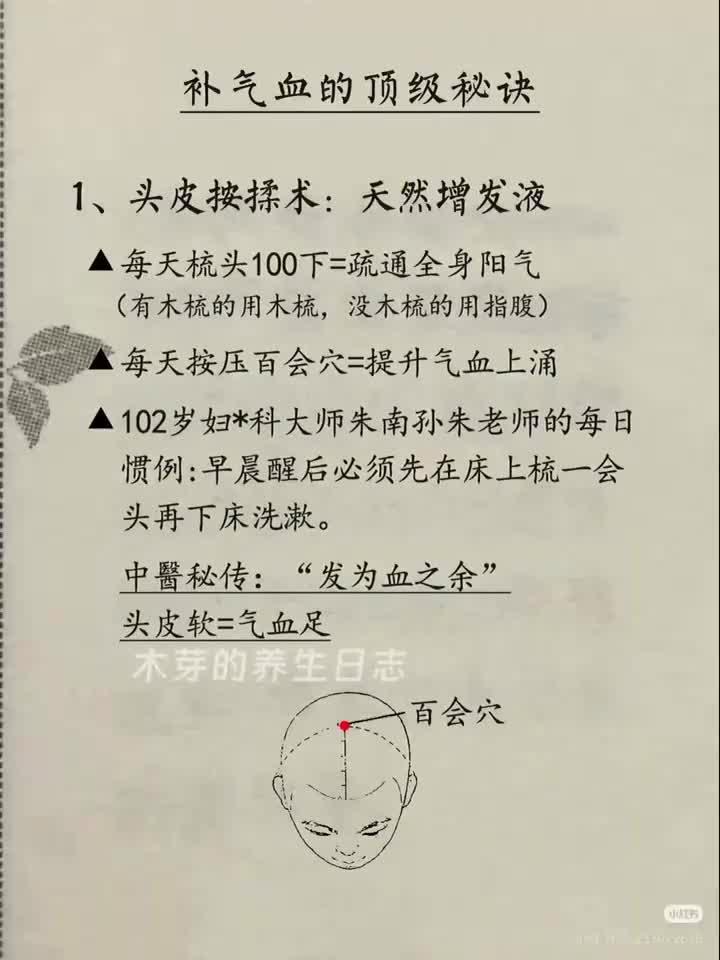 补气血的顶级秘诀
1、头皮按揉术：天然增发液
▲每天梳头100下=疏通全身阳气
（有木梳的用木梳，没木梳的用指腹）
▲每天按压百会穴=提升气血上涌
▲102岁妇*科大师朱南孙朱老师的每日
惯例：早晨醒后必须先在床上梳一会
头再下床洗漱。
中醫秘传：“发为血之余”
头皮软=气血足
木芽的养生日志
百会穴
小红书